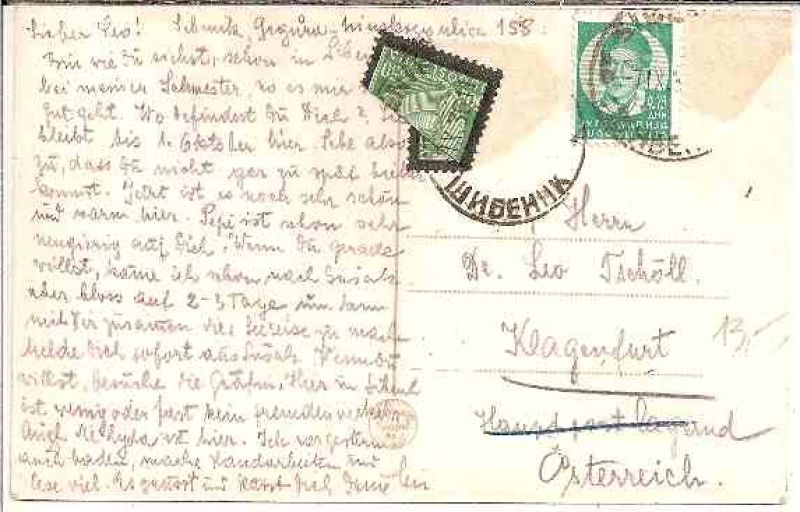 Lieber Leo! ulica 158.
Bin wie du siehst, schon in
bei meiner Schwester, wo es mir
gut geht. Wo befindest Du Dich?
bleibt bis 1. Oktober hier. Sehe also
zu, dass Du nicht gar zu spät
kommst. Jetzt ist es noch sehr schön
und warm hier. Pepi ist schon sehr
neugierig auf Dich. Wenn Du gerade
willst, käme ich schon nach Sušak
aber bloss auf 2-3 Tage um dann
mit Dir zusamen die Seereise zu
Melde Dich sofort aus Sušak. Wenn Du
willst, besuche die Gräfin. Hier in
ist wenig oder fast kein fremdenverkehr.
Auch ist hier. Ich
auch baden, mache Handarbeiten und
lese viel. Es grüsst und küsst Dich Deine
ШИБЕНИК
ЈУГОСЛАВИЈА
Herrn
Dr. Leo Tschöll.
Klagenfurt
Hauptpost lagernd
Österreich.
13,-